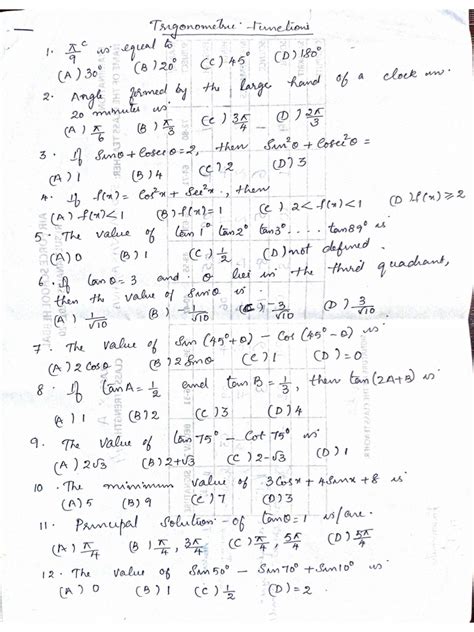 Trigonometric Functions
1. π/9 ᶜ is equal to
(A) 30° (B) 20° (C) 45° (D) 180°
2. Angle formed by the large hand of a clock in
20 minutes is
(A) π/6 (B) π/3 (C) 3π/4 (D) 2π/3
3. If Sinθ + Cosecθ = 2, then Sin²θ + Cosec²θ =
(A) 1 (B) 4 (C) 2 (D) 3
4. If f(x) = Cos²x + Sec²x, then
(A) f(x) < 1 (B) f(x) = 1 (C) 2 < f(x) < 1 (D) f(x) ≥ 2
5. The value of tan 1° tan2° tan3° .... tan89° is
(A) 0 (B) 1 (C) 1/2 (D) not defined
6. If tanθ = 3 and θ lies in the third quadrant,
then the value of Sinθ is
(A) 1/√10 (B) -1/√10 (C) -3/√10 (D) 3/√10
7. The value of Sin (45°+θ) - Cos (45°-θ) is
(A) 2 Cosθ (B) 2 Sinθ (C) 1 (D) = 0
8. If tanA = 1/2 and tanB = 1/3, then tan(2A+B) is
(A) 1 (B) 2 (C) 3 (D) 4
9. The value of tan 75° - Cot 75° is
(A) 2√3 (B) 2+√3 (C) 2-√3 (D) 1
10. The minimum value of 3Cosx + 4Sinx + 8 is
(A) 5 (B) 9 (C) 7 (D) 3
11. Principal Solution of tanθ = 1 is/are
(A) π/4 (B) π/4, 3π/4 (C) π/4, 5π/4 (D) 5π/4
12. The value of Sin50° - Sin70° + Sin10° is
(A) 0 (B) 1 (C) 1/2 (D) = 2